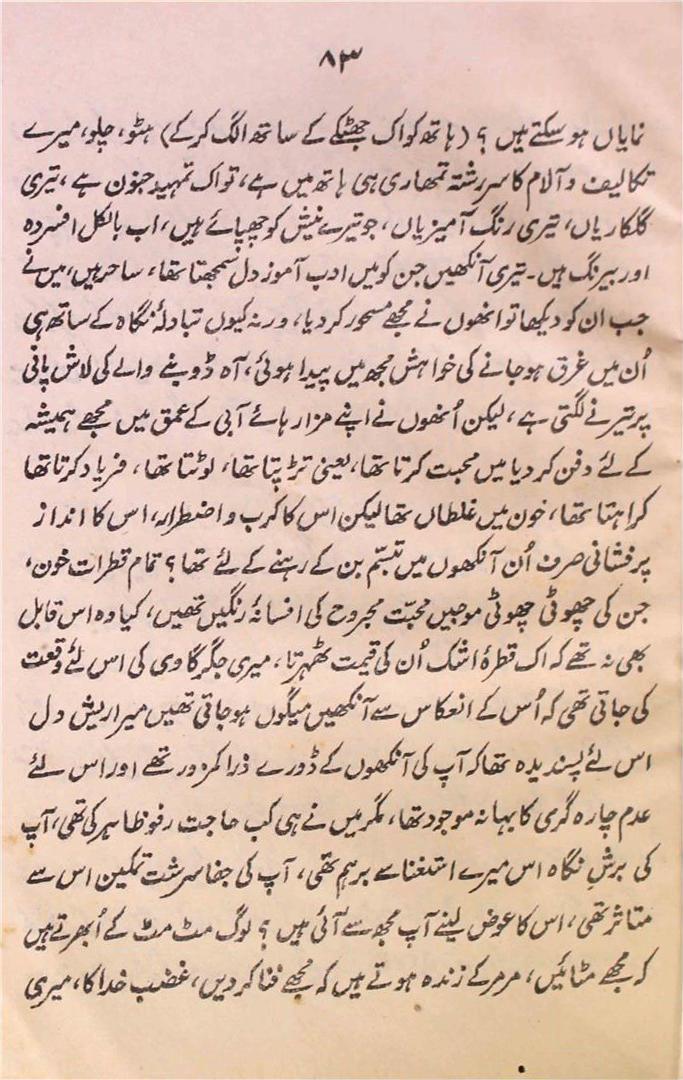 ۸۳
نمایاں ہو سکتے ہیں ؟ (ہاتھ کو اک جھٹکے کے ساتھ الگ کرکے) ہٹو، چلو، میرے
تکالیف و آلام کا سررشتہ تمھاری ہی ہاتھ میں ہے، تو اک تمہید جنون ہے، تیری
گلکاریاں، تیری رنگ آمیزیاں، جو تیرے نیش کو چھپائے ہیں، اب بالکل افسردہ
اور بیرنگ ہیں۔ تیری آنکھیں جن کو میں ادب آموز دل سمجھتا تھا، ساحر ہیں، میں نے
جب ان کو دیکھا تو انھوں نے مجھے مسحور کر دیا، ورنہ کیوں تبادلۂ نگاہ کے ساتھ ہی
اُن میں غرق ہو جانے کی خواہش مجھ میں پیدا ہوئی، آہ ڈوبنے والے کی لاش پانی
پر تیرنے لگتی ہے، لیکن اُنھوں نے اپنے مزار ہائے آبی کے عمق میں مجھے ہمیشہ
کے لئے دفن کر دیا میں محبت کرتا تھا، یعنی تڑپتا تھا، لوٹتا تھا، فریاد کرتا تھا
کراہتا تھا، خون میں غلطاں تھا لیکن اس کا کرب و اضطراب، اس کا انداز
پرفشانی صرف اُن آنکھوں میں تبسّم بن کے رہنے کے لئے تھا؟ تمام قطرات خون،
جن کی چھوٹی چھوٹی موجیں محبّت مجروح کی افسانۂ رنگیں تھیں، کیا وہ اس قابل
بھی نہ تھے کہ اک قطرۂ اشک اُن کی قیمت ٹھہرتا، میری جگر کاوی کی اس لئے وقعت
کی جاتی تھی کہ اُس کے انعکاس سے آنکھیں میگوں ہو جاتی تھیں میرا ریش دل
اس لئے پسندیدہ تھا کہ آپ کی آنکھوں کے ڈورے ذرا کمزور تھے اور اس لئے
عدم چارہ گری کا بہانہ موجود تھا، مگر میں نے ہی کب حاجت رفو ظاہر کی تھی، آپ
کی برشِ نگاہ اس میرے استغنا سے برہم تھی، آپ کی جفا سرشت تمکین اس سے
متاثر تھی، اس کا عوض لینے آپ مجھ سے آئی ہیں ؟ لوگ مٹ مٹ کے اُبھرتے ہیں
کہ مجھے مٹائیں، مر مر کے زندہ ہوتے ہیں کہ مجھے فنا کر دیں، غضب خدا کا، میری